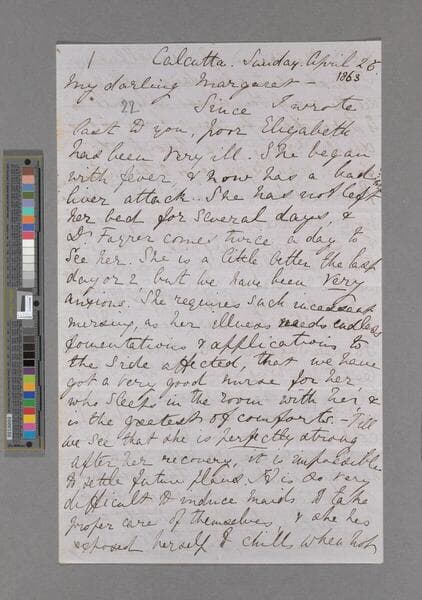 1 Calcutta. Sunday. April 26.
1863
My darling Margaret -
22 Since I wrote
last to you, poor Elizabeth
has been very ill. She began
with fever, & now has a bad
liver attack. She has not left
her bed for several days, &
Dr Fayrer comes twice a day to
see her. She is a little better the last
day or 2, but we have been very
anxious. She requires such incessant
nursing, as her illness needs endless
fomentations & applications to
the side affected, that we have
got a very good nurse for her,
who sleeps in the room with her &
is the greatest of comforts. - Till
we see that she is perfectly strong
after her recovery, it is impossible
to settle future plans. It is so very
difficult to induce maids to take
proper care of themselves, & she has
exposed herself to chills when hot